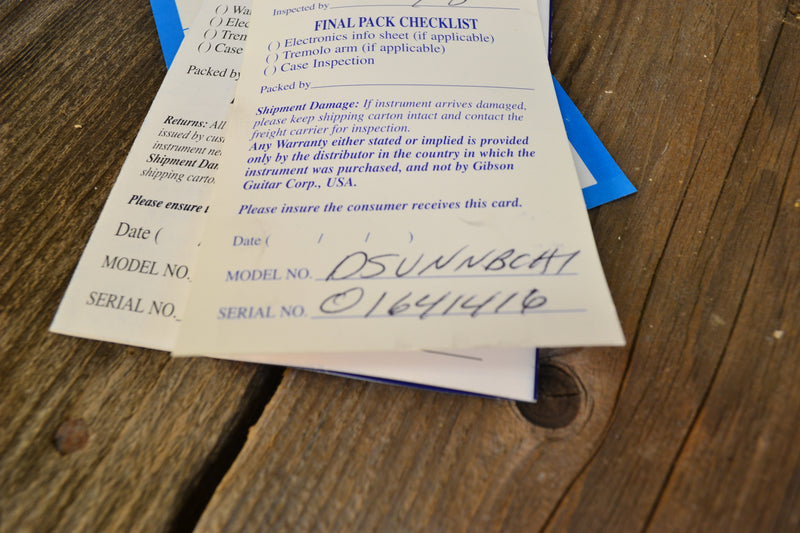 Inspected by
FINAL PACK CHECKLIST
( ) Electronics info sheet (if applicable)
( ) Tremolo arm (if applicable)
( ) Case Inspection
Packed by
Shipment Damage: If instrument arrives damaged,
please keep shipping carton intact and contact the
freight carrier for inspection.
Any Warranty either stated or implied is provided
only by the distributor in the country in which the
instrument was purchased, and not by Gibson
Guitar Corp., USA.
Please insure the consumer receives this card.
Date ( / / )
MODEL NO. DSUNNBCH1
SERIAL NO. 01641416
( ) Wa
( ) Elec
( ) Trem
( ) Case
Packed by
Returns: All
issued by cus
instrument ne
Shipment Dam
shipping carto
Please ensure t
Date (
MODEL NO.
SERIAL NO.